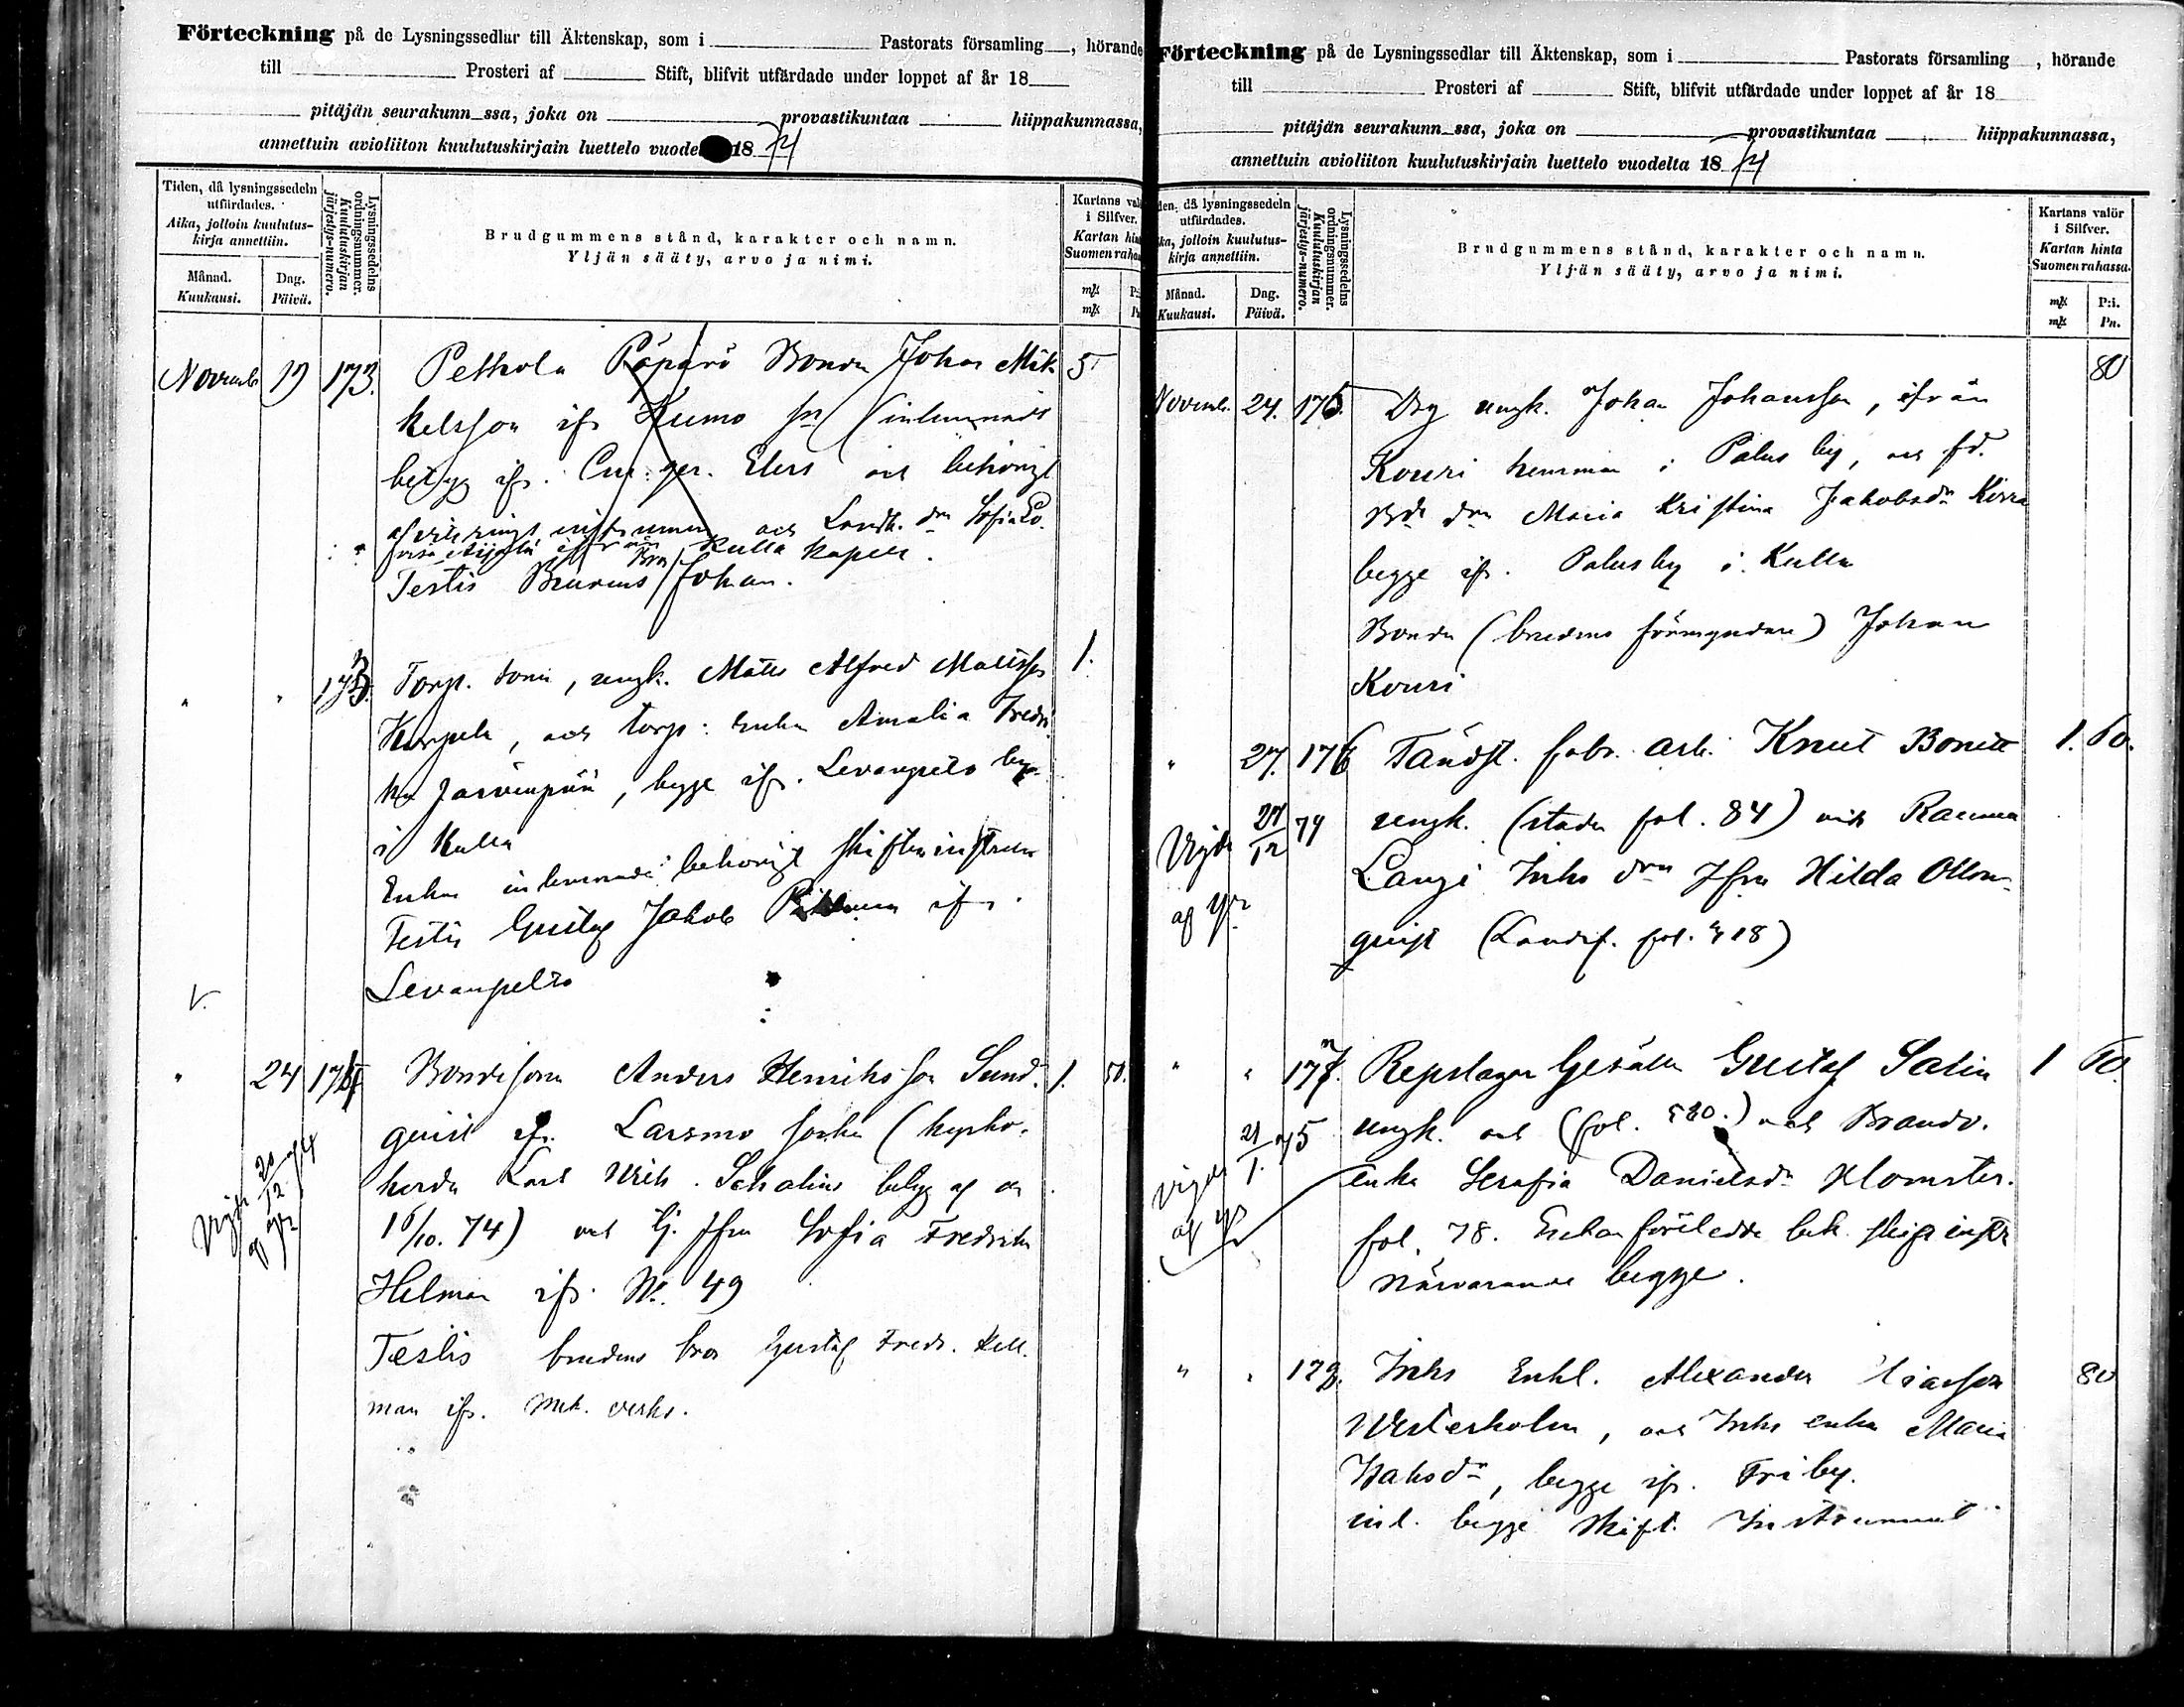 Förteckning på de Lysningssedlar till Äktenskap, som i Pastorats församling , hörande
till Prosteri af Stift, blifvit utfärdade under loppet af år 18
pitäjän seurakunn ssa, joka on provastikuntaa hiippakunnassa,
annettuin avioliiton kuulutuskirjain luettelo vuode 1874
Tiden, då lysningssedeln utfärdades.
Aika, jolloin kuulutus-kirja annettiin.
Månad.
Kuukausi.
Dag.
Päivä.
Lysningssedelns ordningsnummer.
Kuulutuskirjan järjestys-numero.
Brudgummens stånd, karakter och namn.
Yljän sääty, arvo ja nimi.
Kartans val
i Silfver.
Kartan hin
Suomen raha
mk
mk
Novemb 19 173. Pethola Bonde Johan Mik 5
kelsson ifr Kumo sn (inlemnade
betyg ifr. Elers och behörigt
och Landb. dr Sofia Lo
visa ifrån Kulla kapell.
Testis Bruens Bror Johan.
" " 173. Torp. sonen, ungk. Matts Alfred Mattsson 1.
Korpela, och torp: enkan Amalia Fredri
ka Jarvenpää, begge ifr. Levanpelto by
i Kulla
Enkan inlemnade behörigt skiftesinstrum
Testis Gustaf Jakob ifr.
Levanpelto
V.
" 24 174 Bondesonen Anders Henriksson Sund- 1. 50.
quist ifr. Larsmo socken (kyrko-
herde Karl Schalins betyg af den
16/10. 74) och tj. Jfrn Sofia Fredrika
Helman ifr. No. 49
Vigde 20/12 74
af
Testis brudens bror Gustaf Fredr. Hell-
man ifr. Mek. verks.
Förteckning på de Lysningssedlar till Äktenskap, som i Pastorats församling , hörande
till Prosteri af Stift, blifvit utfärdade under loppet af år 18
pitäjän seurakunn ssa, joka on provastikuntaa hiippakunnassa,
annettuin avioliiton kuulutuskirjain luettelo vuodelta 1874
den, då lysningssedeln utfärdades.
ka, jolloin kuulutus-kirja annettiin.
Månad.
Kuukausi.
Dag.
Päivä.
Lysningssedelns ordningsnummer.
Kuulutuskirjan järjestys-numero.
Brudgummens stånd, karakter och namn.
Yljän sääty, arvo ja nimi.
Kartans valör
i Silfver.
Kartan hinta
Suomen rahassa.
mk P:i.
mk Pn.
80
Novemb. 24. 175. Drg ungk. Johan Johansson, ifrån
Kouri hemman i Palus by, och fd.
Bde drn Maria Kristina Jakobsdr
begge ifr. Palus by i Kulla
Bonden (brudens förmyndare) Johan
Kouri
" 27. 176 Tändst. fabr. arb. Knut Bonitt 1. 60.
ungk. (staden fol. 84) och Rauma
Langi Inhs drn Jfrn Hilda Ollon-
qvist (Landsf. fol. 418)
Vigde 27/12 74
af
" " 177. Repslagar Gesällen Gustaf Salin 1 60.
ungk. och (fol. 580.) och Brandv.
enka Serafia Danielsdr Blomster.
fol. 78. Enkan företedde beh. skift. instr
Närvarande begge.
Vigde 21/1. 75
af
" " 178. Inhs Enkl. Alexander 80
Westerholm, och Inhs enkan Maria
Isaksdr, begge ifr. Friby.
inl. begge skift. Instrument